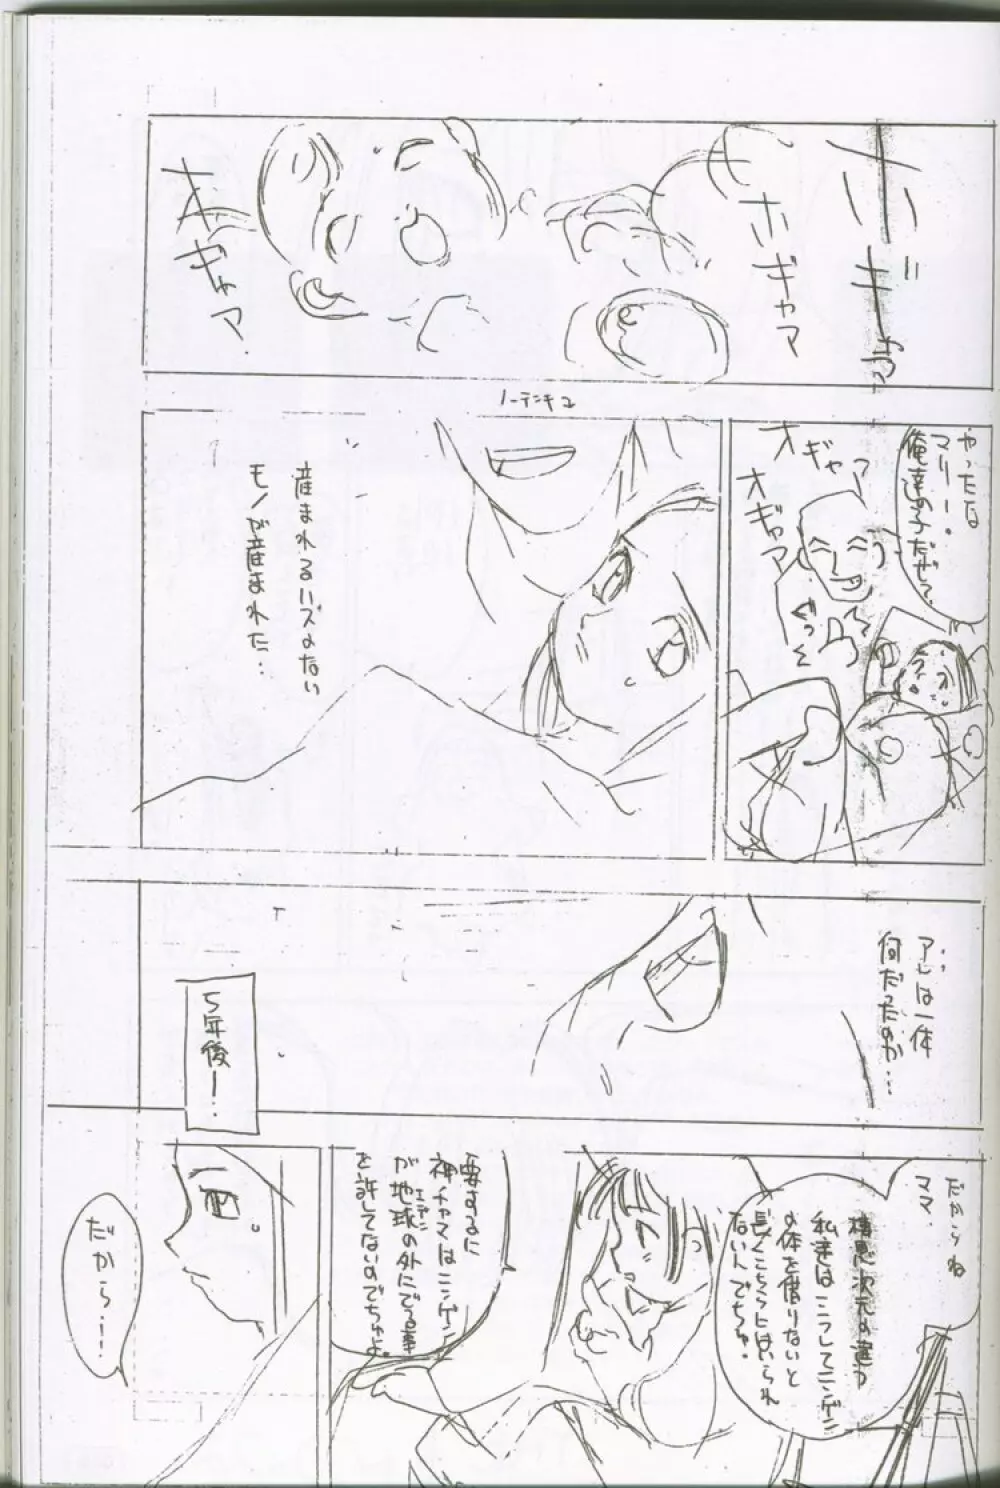 ホギャア
ホギャア
オギャア
ノーテンキュ
やったな
マリー。
俺達の子だぜて。
オギャア
オギャア
ぐっ
産まれるハズのない
モノが産まれた…
アレは一体
何だったのか…
5年後ー。
だからね
ママ
次元の違う
私達はこうしてニンゲン
の体を借りないと
長くこちらにはいられ
ないんでちゅ。
要するに
神チャマはニンゲン
が地球の外にでる事
エデン
を許してないのでちゅよ。
だから…！